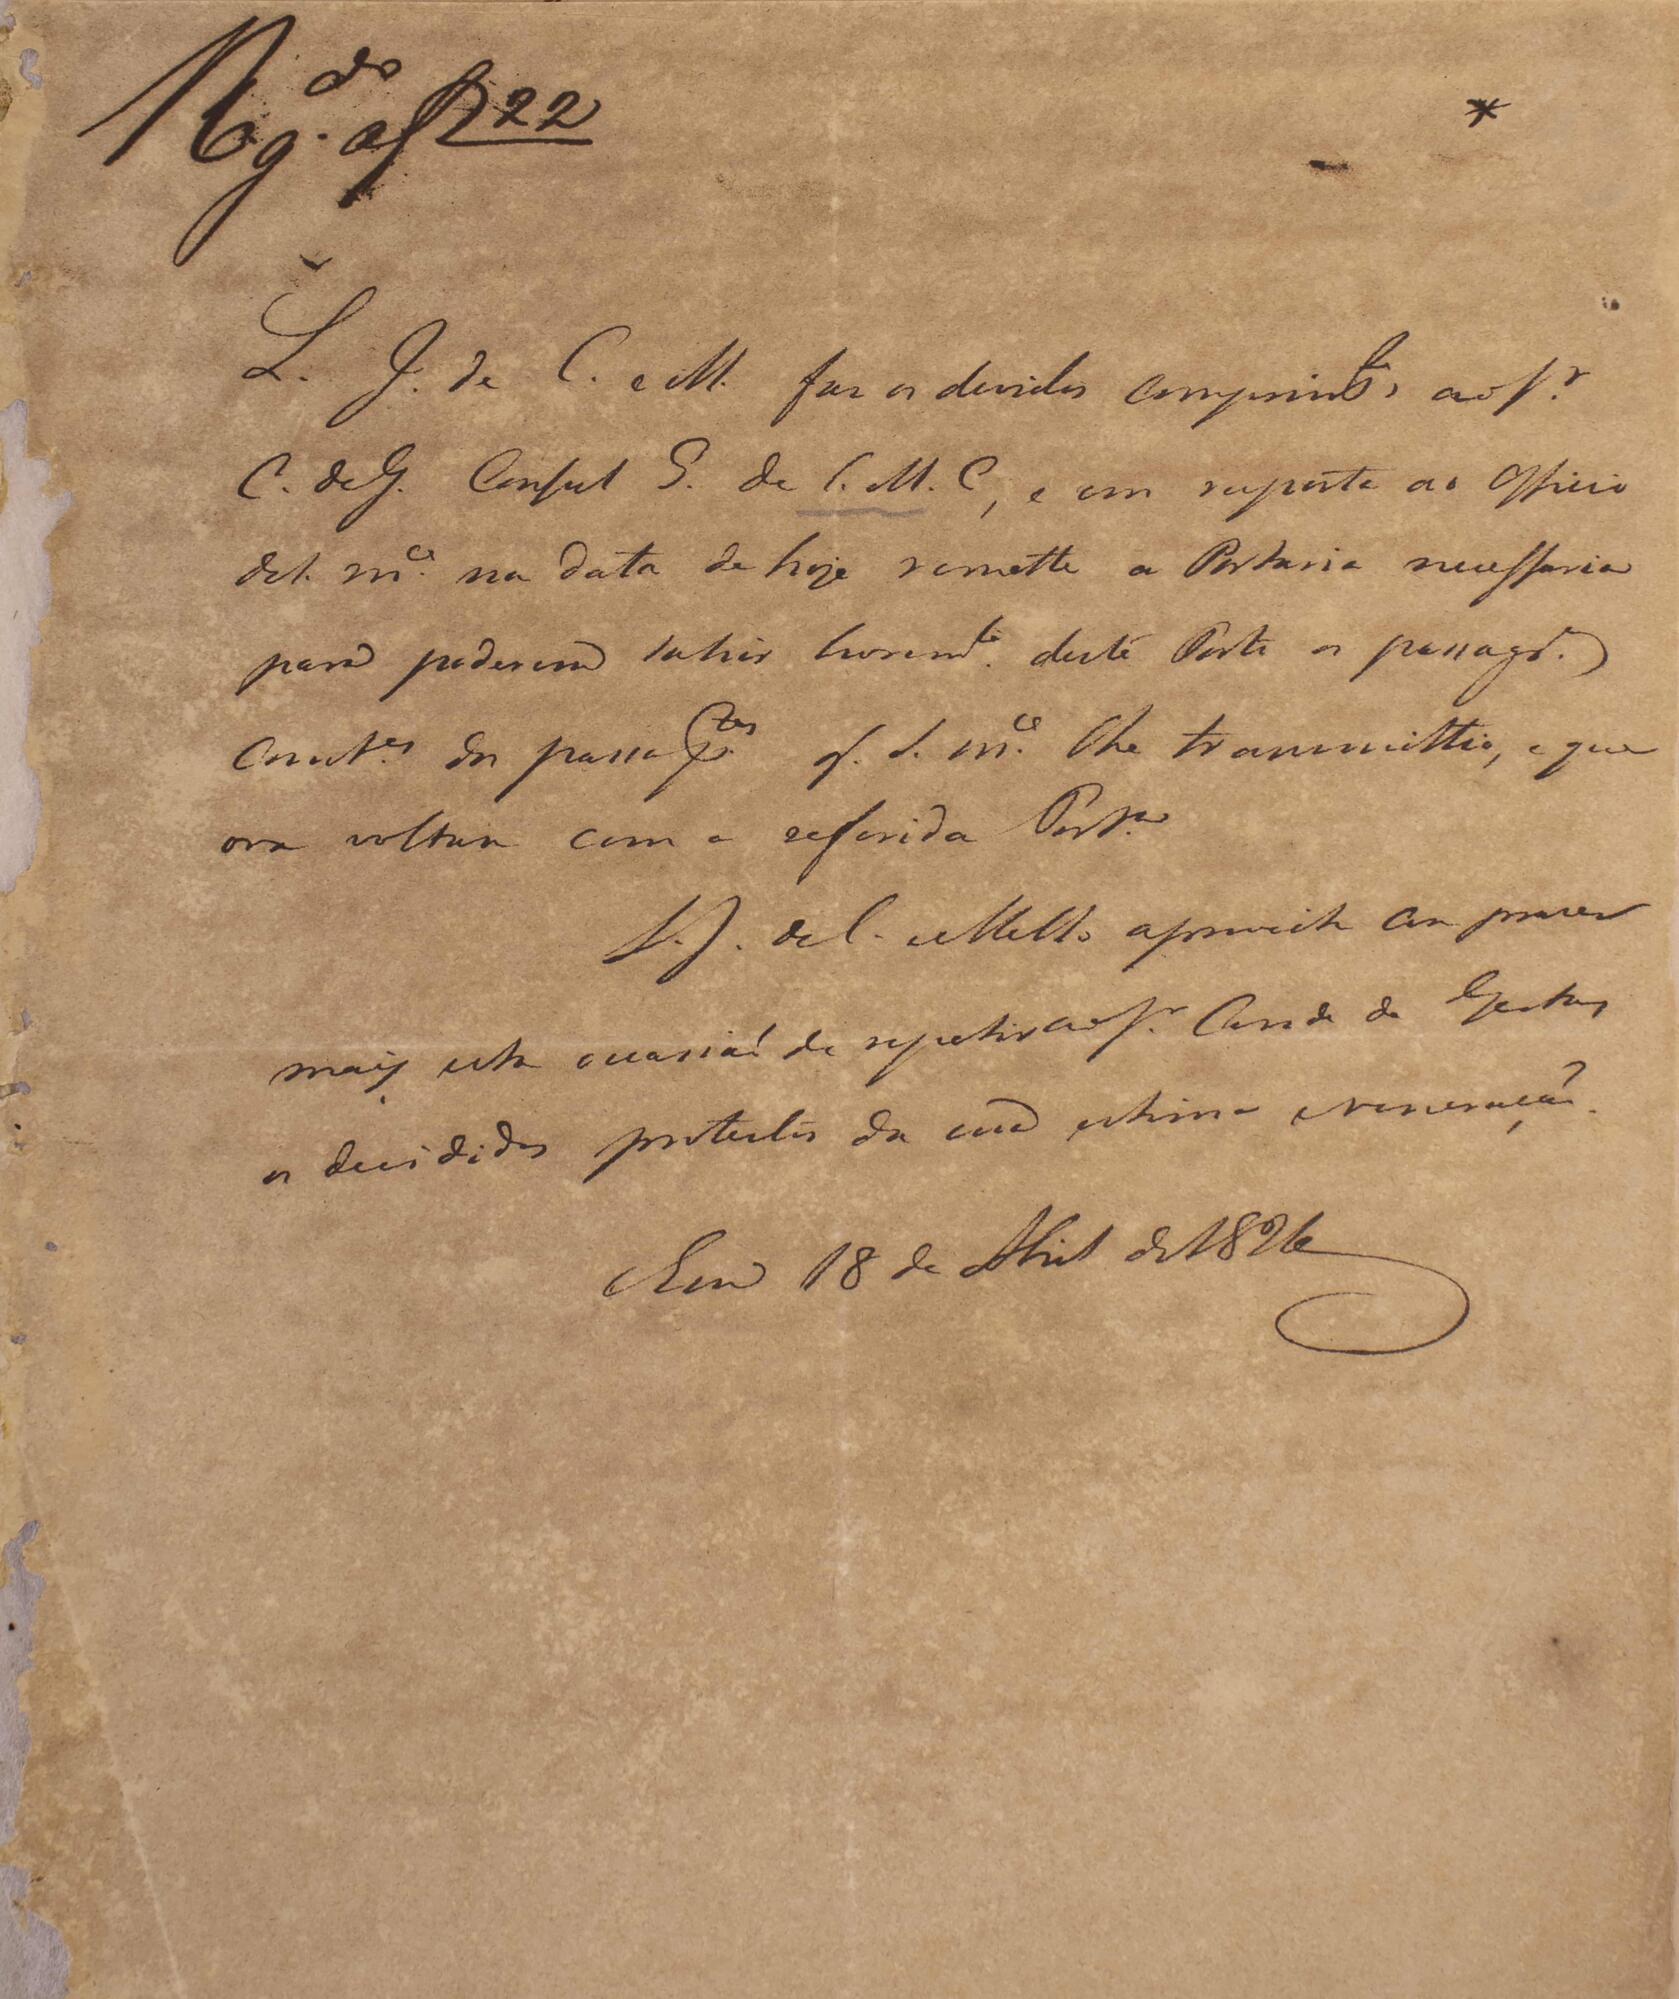 Reg.do a f 22
L. J. de C. e M. faz os devidos comprim.tos ao Sr.
C. de G. Consul G. de S. M. C, e em resposta ao Officio
de S. m.ce na data de hoje remette a Portaria necessaria
para poderem sahir livrem.te deste Porto os passagr.
const.es dos passap.tes q. S. m.ce lhe transmittio, e que
ora voltam com a referida Port.a
L. J. de C. e Mello aproveita com prazer
mais esta occasiaõ de repetir ao Sr. Conde de Gestas
os decididos protestos da sua estima e veneração.
Em 18 de Abril de 1826